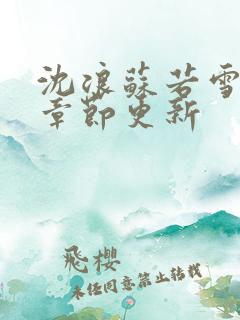 沈浪蘇若雪
章節更新
飛櫻
未經同意禁止轉載